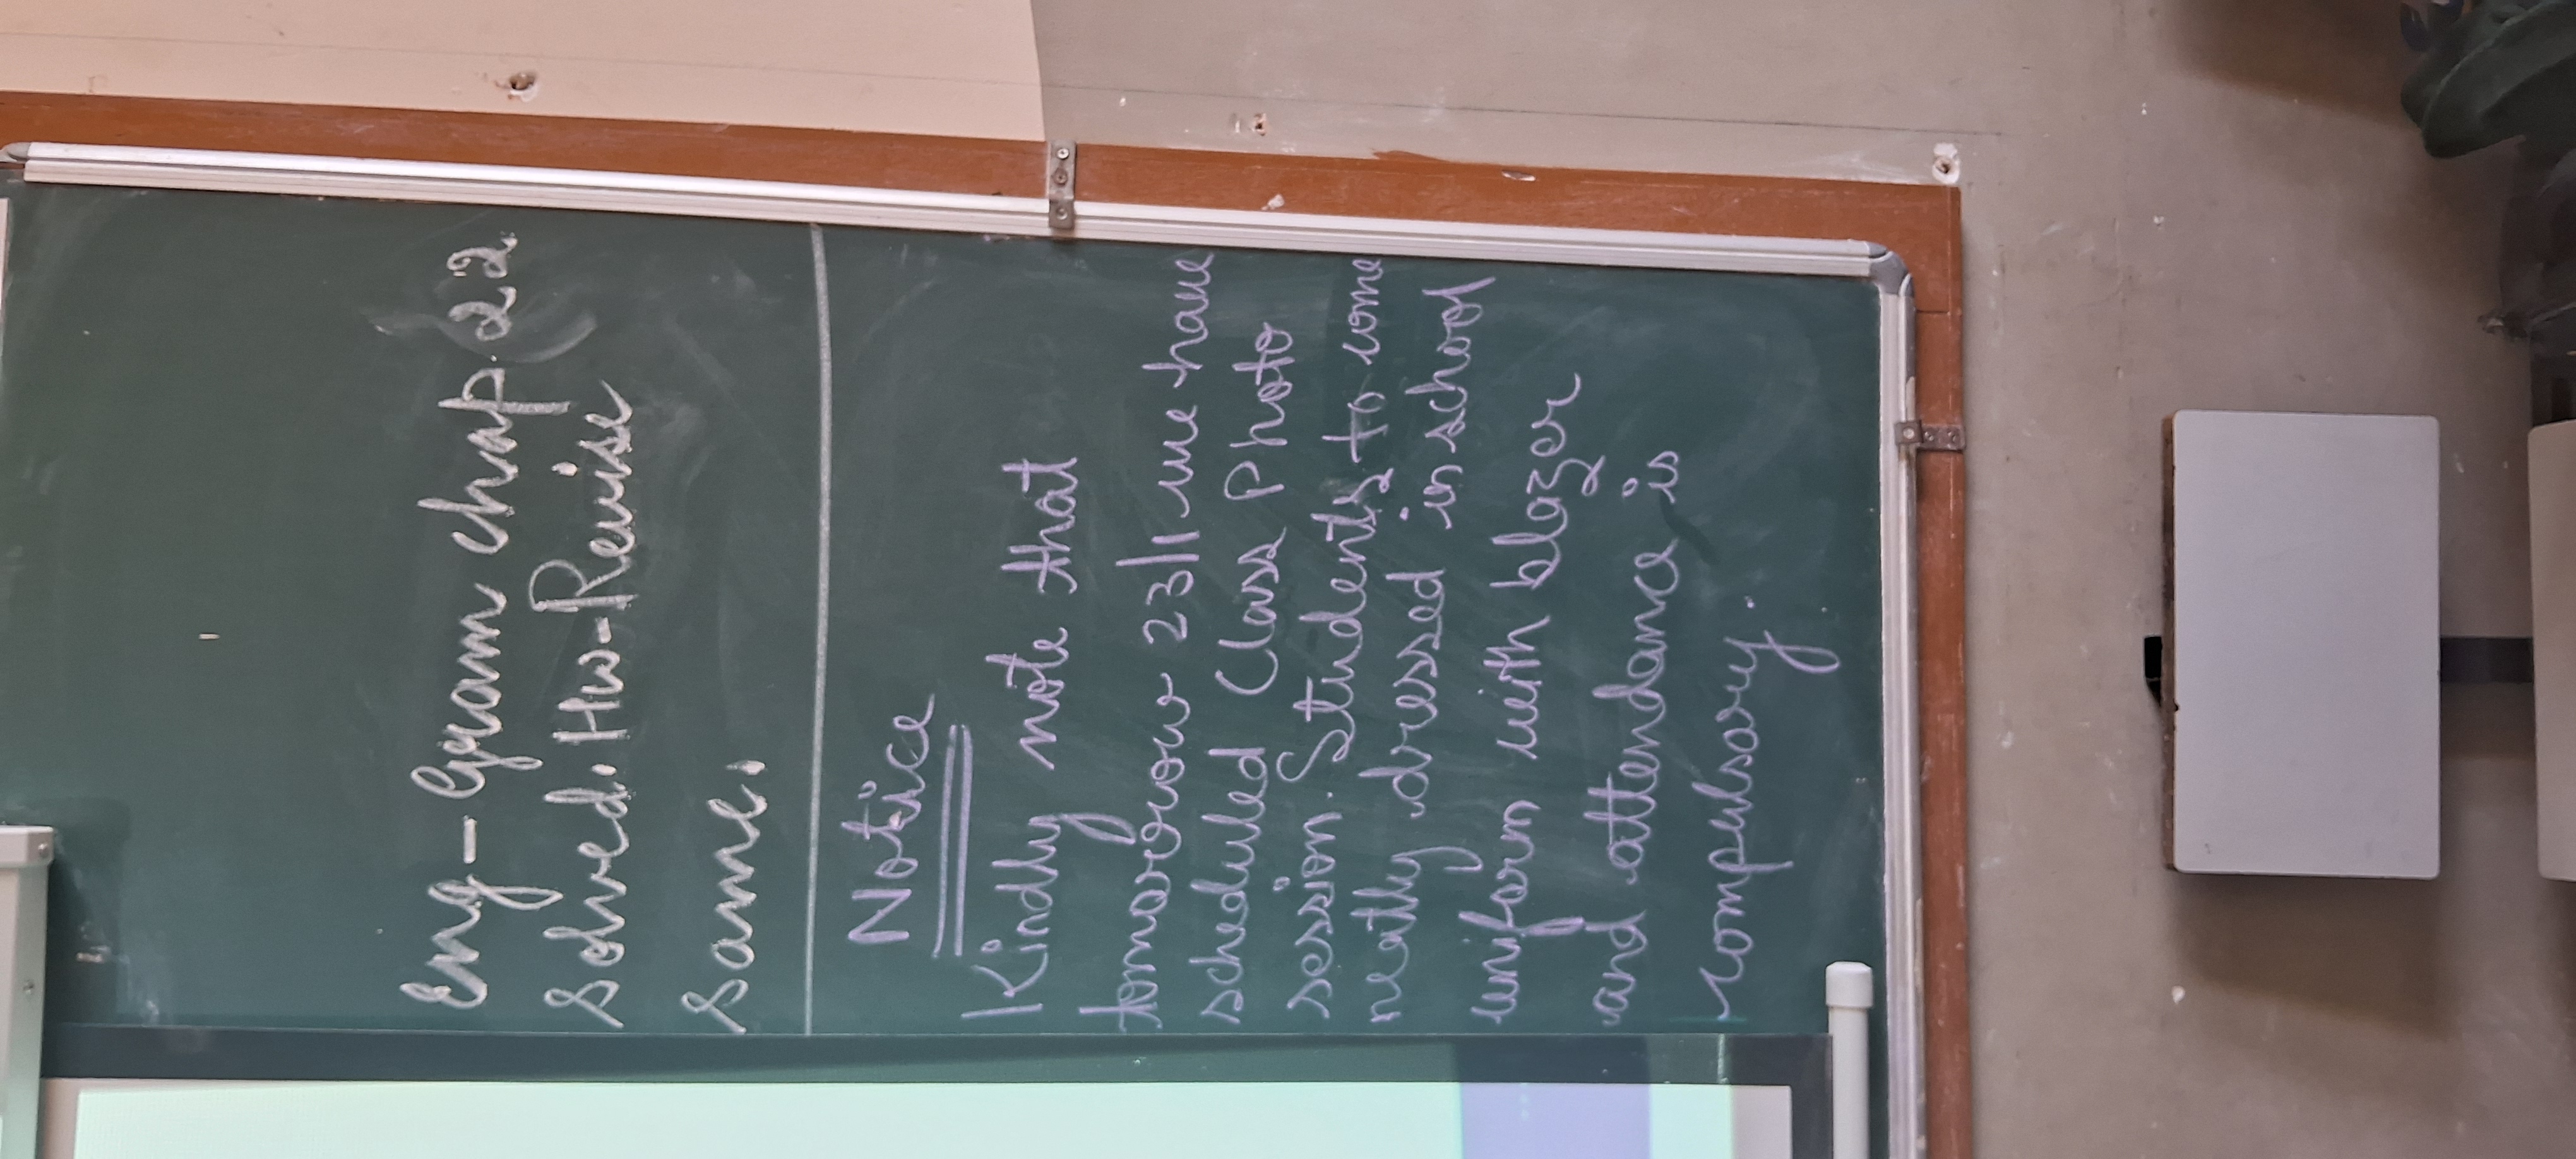 Eng- Gram chap 22
Solved. Hw-Revise
same.
Notice
Kindly note that
tomorrow 23/1 we have
scheduled Class Photo
session. Students to come
neatly dressed in school
uniform with blazer
and attendance is
compulsory.